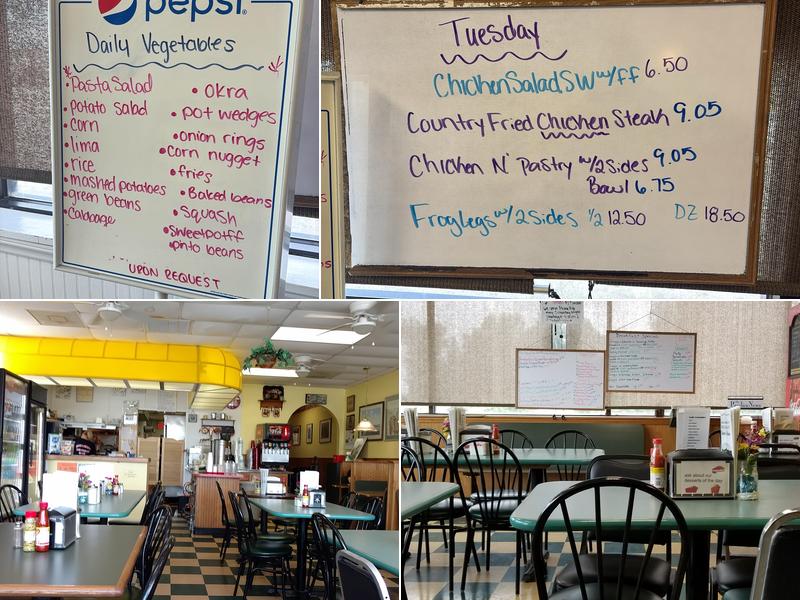 pepsi
Daily Vegetables
• Pasta Salad
• potato salad
• corn
• lima
• rice
• mashed potatoes
• green beans
• Cabbage
• okra
• pot wedges
• onion rings
• corn nugget
• fries
• Baked beans
• Squash
• sweet pot ff
• pinto beans
UPON REQUEST
Tuesday
Chicken Salad SW w/ff 6.50
Country Fried Chicken Steak 9.05
Chicken N' Pastry w/2 Sides 9.05
Bowl 6.75
Froglegs w/2 Sides 1/2 12.50 DZ 18.50
ask about our
desserts of the day